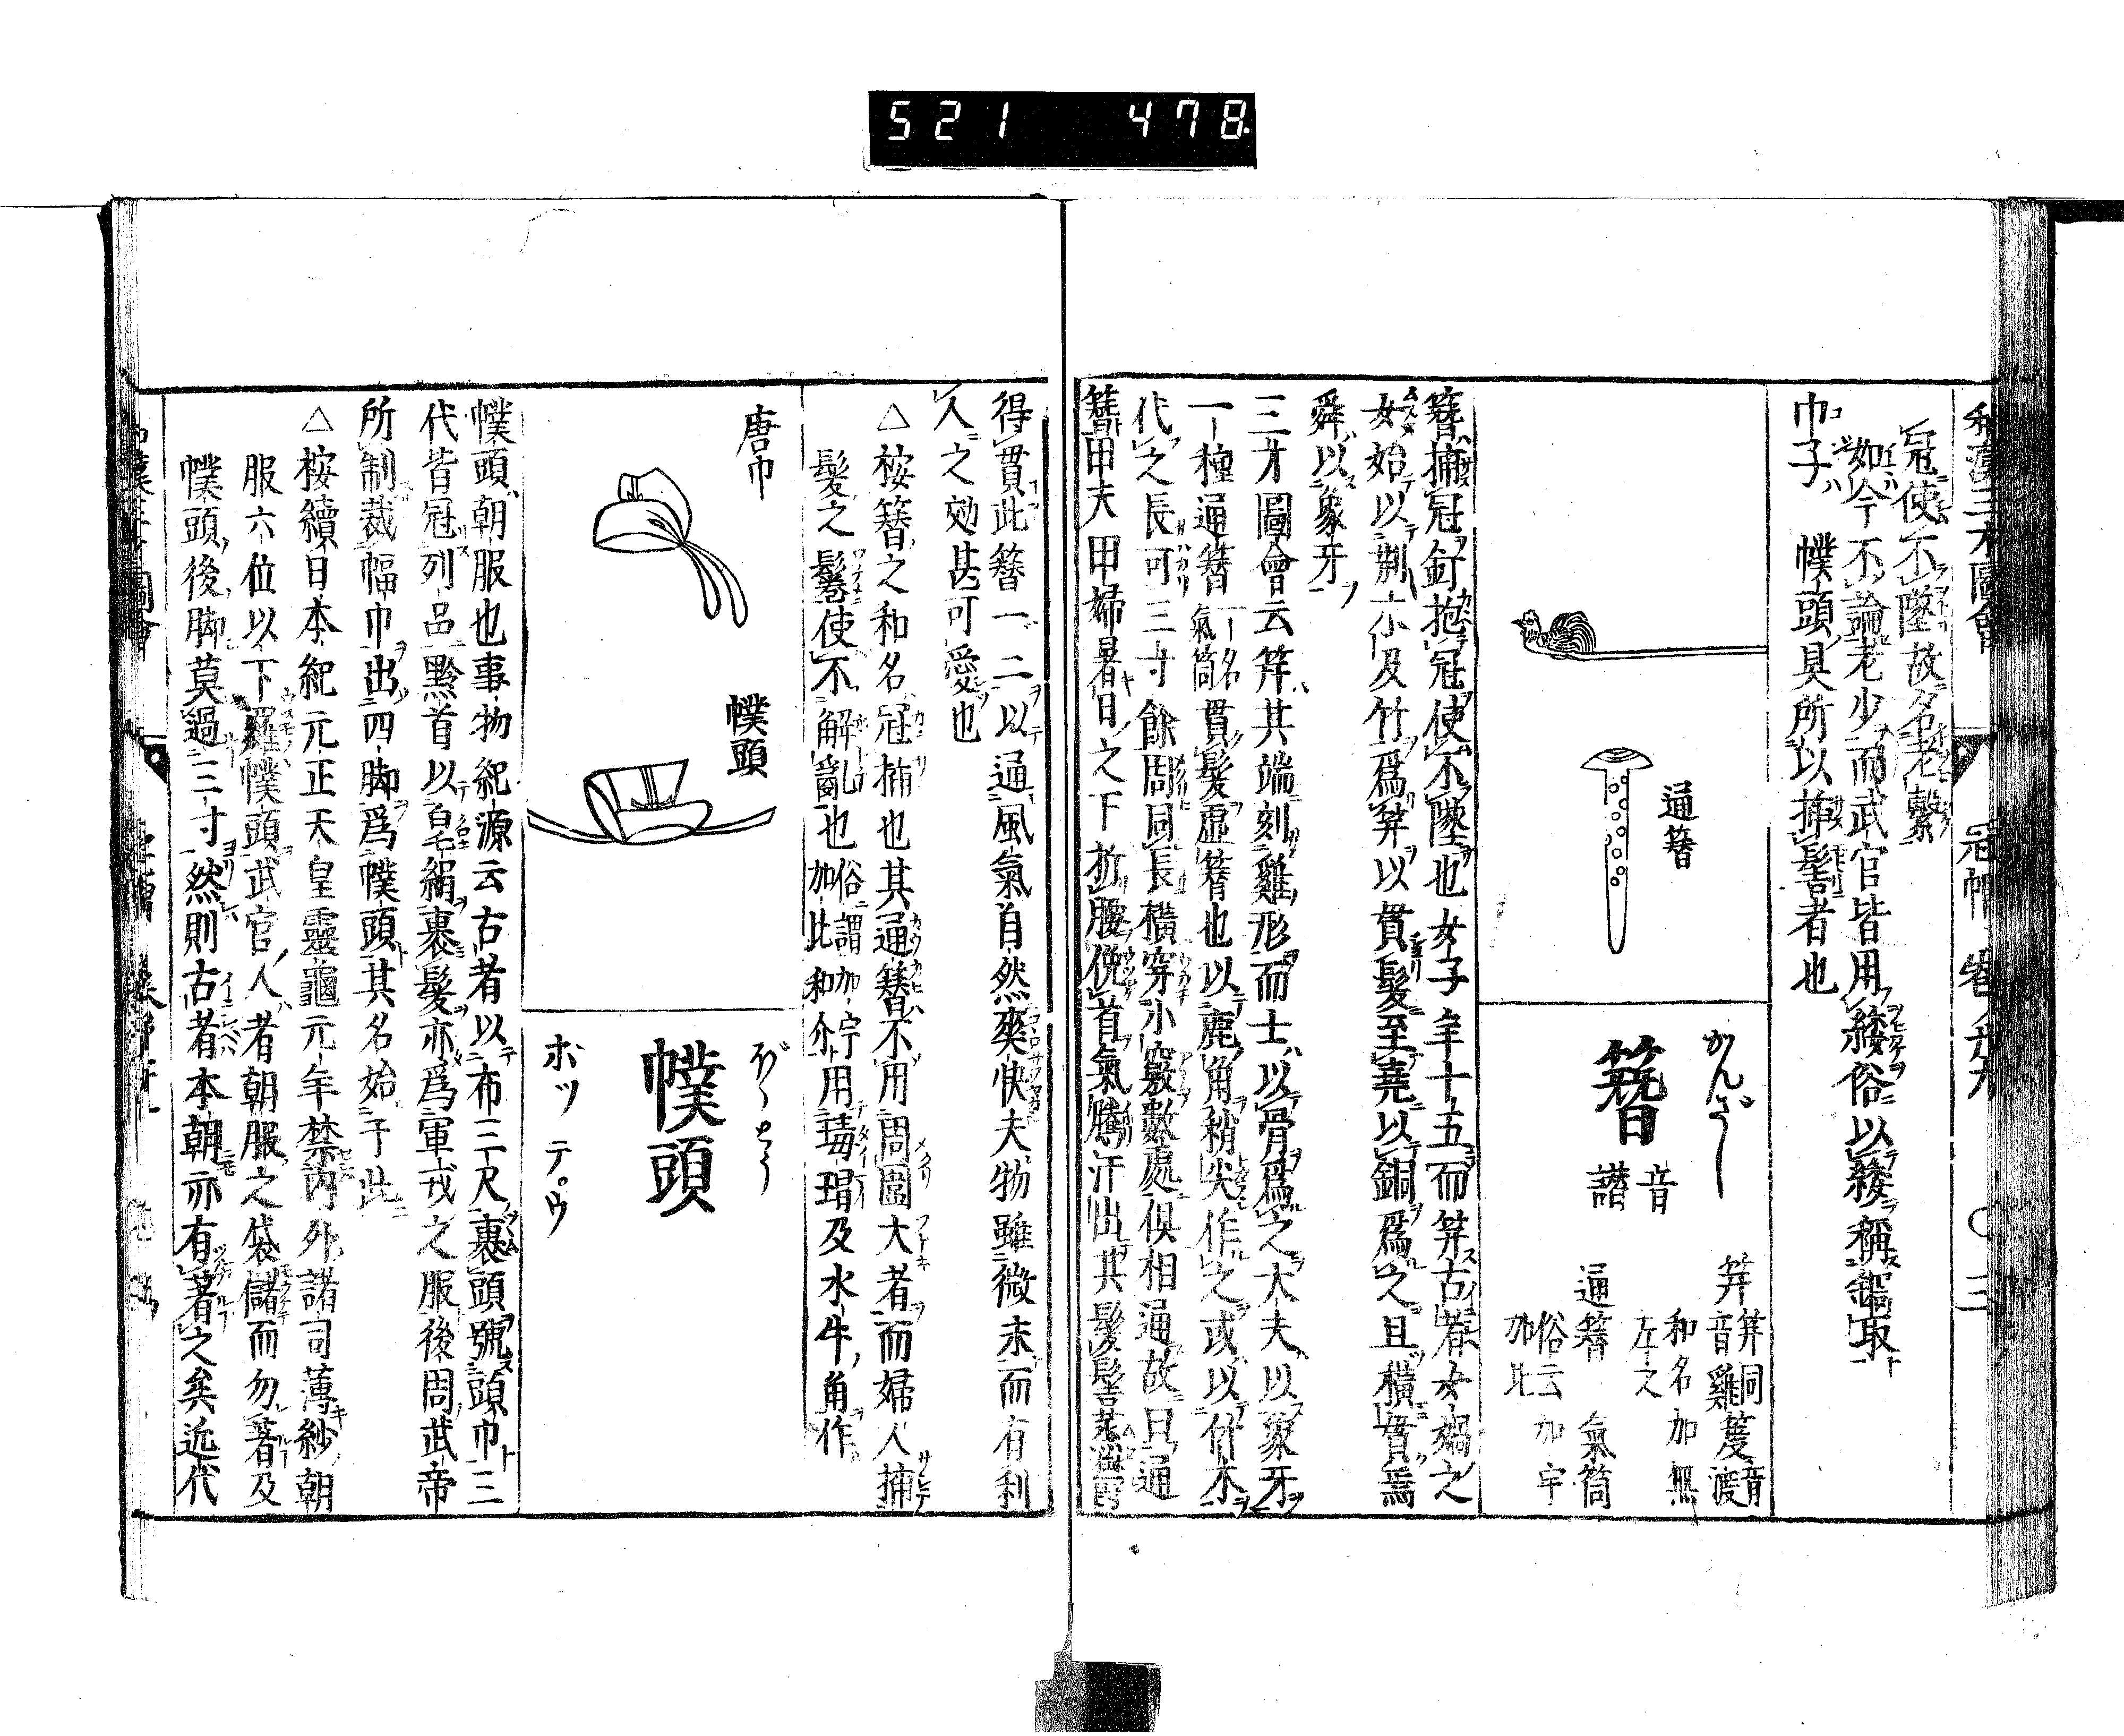 521 478
冠使不墜故名老繫
如今不論老少而武官皆用緌俗以緌稱
巾子 幞頭具所以挿髻者也
通簪
かんざし
簪
音
譖
笄
笄同
音雞
和名加無
左之
通簪 氣筒
俗云加宇
加比
簪揷冠釘抱冠使不墜也女子年十五而笄古者女媧之
女始以荆木及竹爲笄以貫髮至堯以銅爲之且横貫焉
舜以象牙
三才圖會云笄其端刻雞形而士以骨爲之大夫以象牙
一種通簪一名氣筒貫髮虛簪也以鹿角稍尖作之或以竹木
代之長可三寸餘周同長横穿小竅數處俱相通故曰通
簪甲夫甲婦暑日之下折腰俛首氣騰汗出其髮髻蒸濕
得貫此簪一二以通風氣自然爽快夫物雖微末而有利
人之効甚可愛也
△按簪之和名冠揷也其通簪不用周圍大者而婦人揷
髮之鬈使不解亂也俗謂加宇加比和尒用瑇瑁及水牛角作
唐巾
幞頭
ぼくとう
幞頭
ホッ テ゜ウ
幞頭朝服也事物紀源云古者以布三尺裹頭號頭巾三
代皆冠列品黔首以皂絹裹髮亦爲軍戎之服後周武帝
所制裁幅巾出四脚爲幞頭其名始于此
△按續日本紀元正天皇靈龜元年禁內外諸司薄紗朝
服六位以下羅幞頭武官人者朝服之袋儲而勿著及
幞頭後脚莫過三寸然則古者本朝亦有著之矣近代